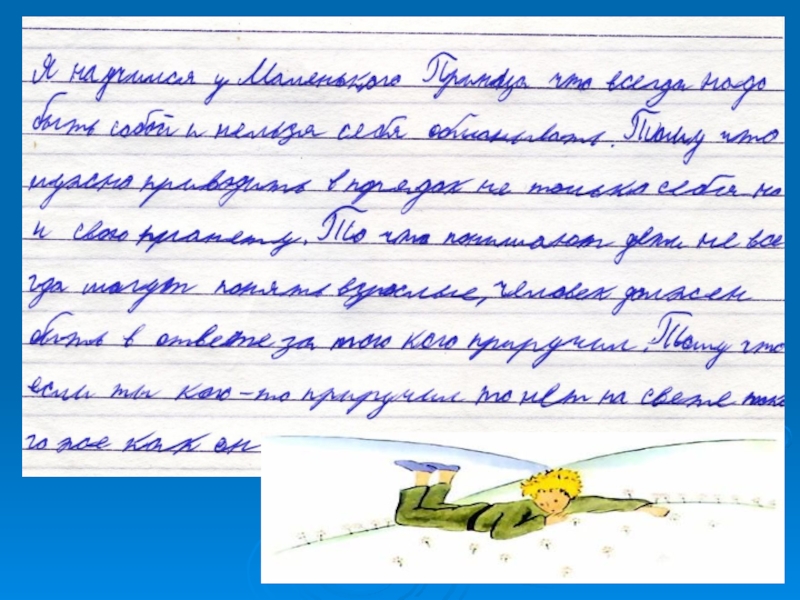 Я научился у Маленького Принца что всегда надо
быть собой и нельзя себя обманывать. Тому что
нужно приводить в порядок не только себя но
и свою планету. То что понимают дети не все
гда могут понять взрослые, человек должен
быть в ответе за того кого приручил. Тому что
если ты кого-то приручил то нет на свете тако
го же как он